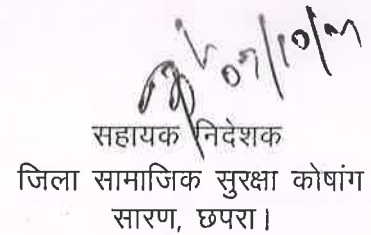 सहायक निदेशक
जिला सामाजिक सुरक्षा कोषांग
सारण, छपरा।